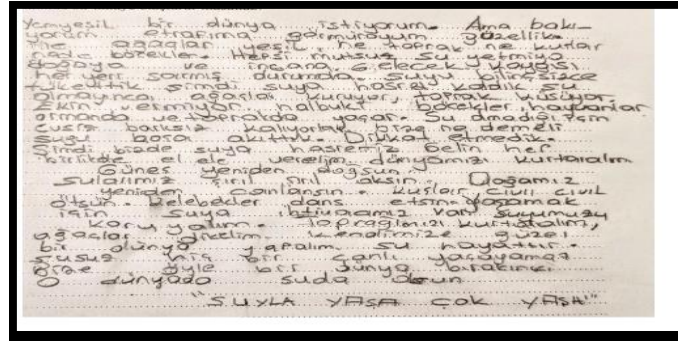 Yemyeşil bir dünya istiyorum. Ama bakı-
yorum etrafıma görmüyorum güzellik.
Ne ağaçlar yeşil, ne toprak ne kuşlar
nede böcekler. Hepsi mutsuz su yetmiyo
doğaya ve insana. Gelecek kaygısı
her yeri sarmış durumda. Suyu bilinçsizce
tükettik şimdi suya hasret kaldık su
olmayınca ağaçlar kuruyor, toprak küsüyor
Ekin vermiyor, halbuki böcekler, hayvanlar
ormanda ve toprakda yaşar. Su olmadığı için
evsiz barksız kalıyorlar bize ne demeli
suyu boşa akıttık. Dikkat etmedik.
Şimdi bizde suya hasretiz Gelin hep
birlikde el ele verelim dünyamızı kurtaralım
Güneş yeniden doğsun.
Sularımız şırıl şırıl aksın. Doğamız
yeniden canlansın. Kuşlar civil civil
ötsün. Kelebekler dans etsin. Yaşamak
için suya ihtiyacımız var. Suyumuzu
koruyalım. Toprağımızı kurtaralım,
ağaçlar dikelim. Kendimize güzel
bir dünya yapalım. Su hayattır.
Susuz hiç bir canlı yaşayamaz
Bize öyle bir dünya bırakınki
O dünyada suda olsun
"SUYLA YAŞA ÇOK YAŞA"